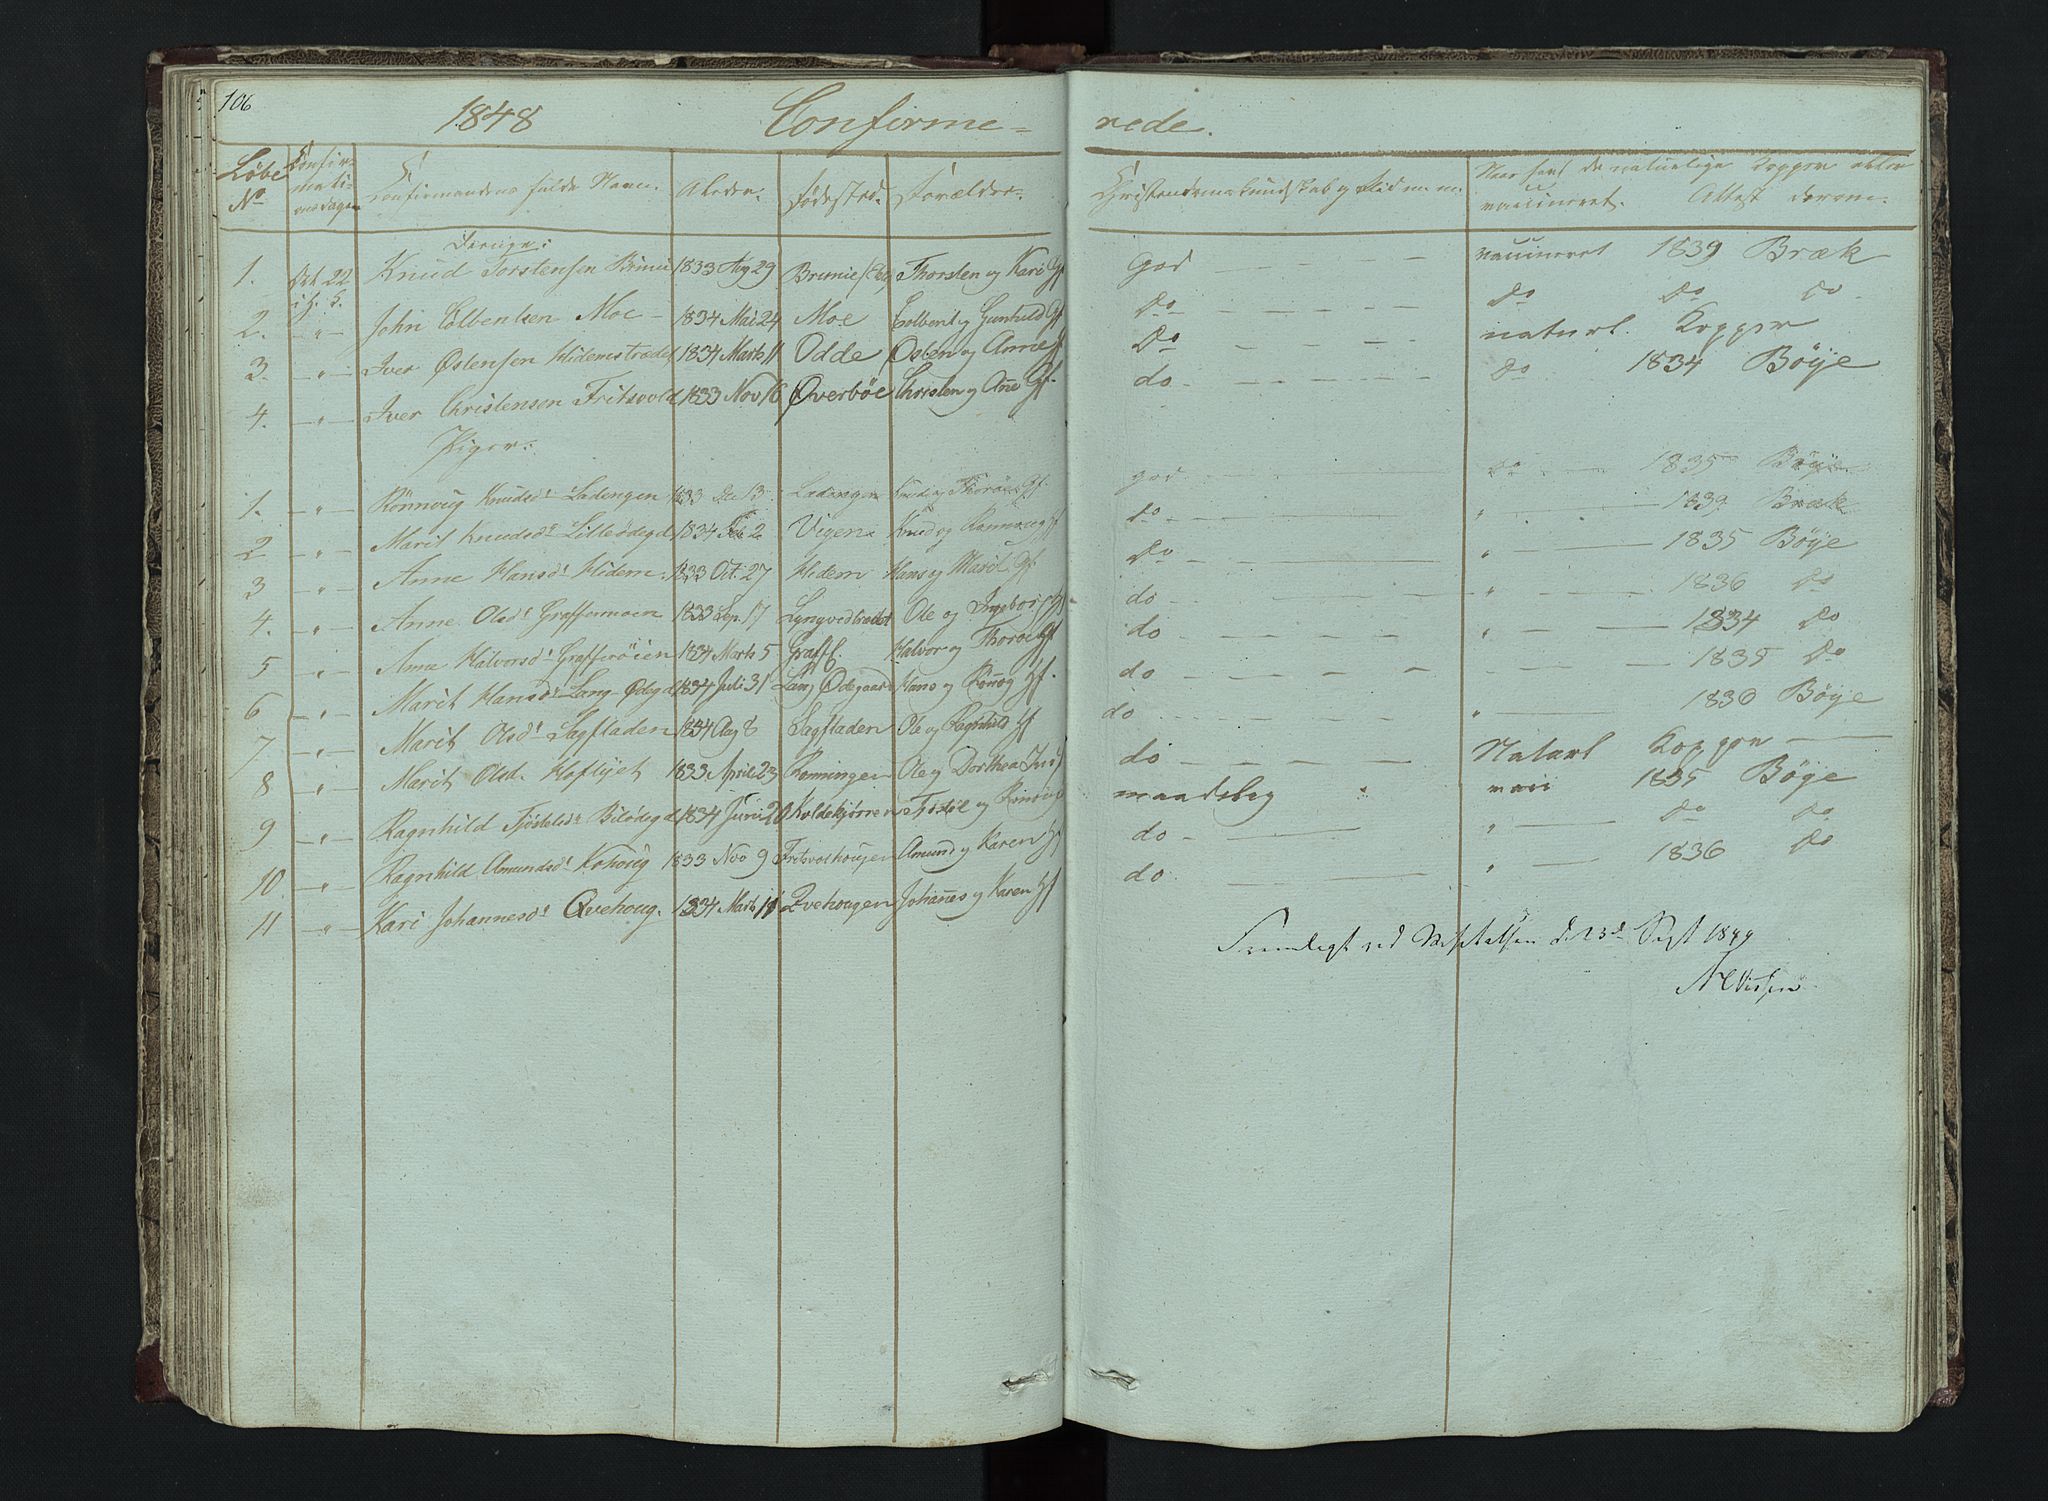 106
1848 Confirme= rede.
Løbe No Confirmationsdagen Confirmandens fulde Navn. Alder. Fødested. Forældre. Christendomskundskab og Flid m. m. Naar havt de naturlige Kopper eller vaccineret. Attest derom.
Drenge:
1. Oct 22 Knud Torstensen Brimi 1833 Aug 29 Brimie Thorsten og Kari Gf god — — — — — vaccineret 1839 Bræk
2. — " — John Colbentsen Moe — 1834 Mai 24 Moe Colbent og Gunhild Gf Do — — — — — Do Do Do
3. — " — Iver Østensen Hidemstrædet 1834 Marts 11 Odde Østen og Anne Gf Do — — — — — naturl. Kopper
4. — " — Iver Christensen Fritsvold 1833 Nov 16 Øverbøe Christen og Ane Gf. do — — — — — Do 1834 Bøye
Piger:
1. — " — Rønnoug Knudsdr Ladengen 1833 Dec 13 Ladengen Knud og Thorøe Gf. god — — Do — 1835 Bøye
2 — " — Marit Knudsdr Lilleødegd 1834 Feb 2 Vigen Knud og Rønnoug Gf do — — " — — 1839 Bræk
3 — " — Anne Hansdr Hidem. 1833 Oct. 27 Hidem Hans og Marit Gf. Do — — " — — 1835 Bøye
4. — " — Anne Olsdr Graffermoen 1833 Sep. 17 Lyngvedtrædet Ole og Ingeborg Gf do — — " — — 1836 Do
5 — " — Anne Halvorsdr Grafferøien 1834 Marts 5 Graff. Halvor og Thorøe Gf do — — " — — 1834 Do
6 — " — Marit Hansdr Lang-Ødegd 1834 Juli 31 Lang Ødegaard Hans og Rønnog Gf. do — — — — 1835 Do
7 — " — Marit Olsdr Sagstaden 1834 Aug 8 Sagstaden Ole og Ragnhild Gf do — — " — 1836 Bøye
8 — " — Marit Olsd. Hoftyet 1833 April 23 Rønningen Ole og Dorthea do — — Naturl Kopper —
9 — " — Ragnhild Tjøstelsdr Bilødegd 1834 Juni 20 Koldekjørren Tjøstøl og Rønnoug maadelig " vacci 1835 Bøye
10. — " — Ragnhild Amundsdr Kohoug 1833 Nov 9 Fritsvoshougen Amund og Karen Gf do — — " — Do Do
11 — " — Kari Johannesdr Qvehoug. 1834 Marts 11 Qvehougen Johanes og Karen Gf do — — " — 1836 Do
Fremlagt ved Visitatsen d. 23d Sept 1849